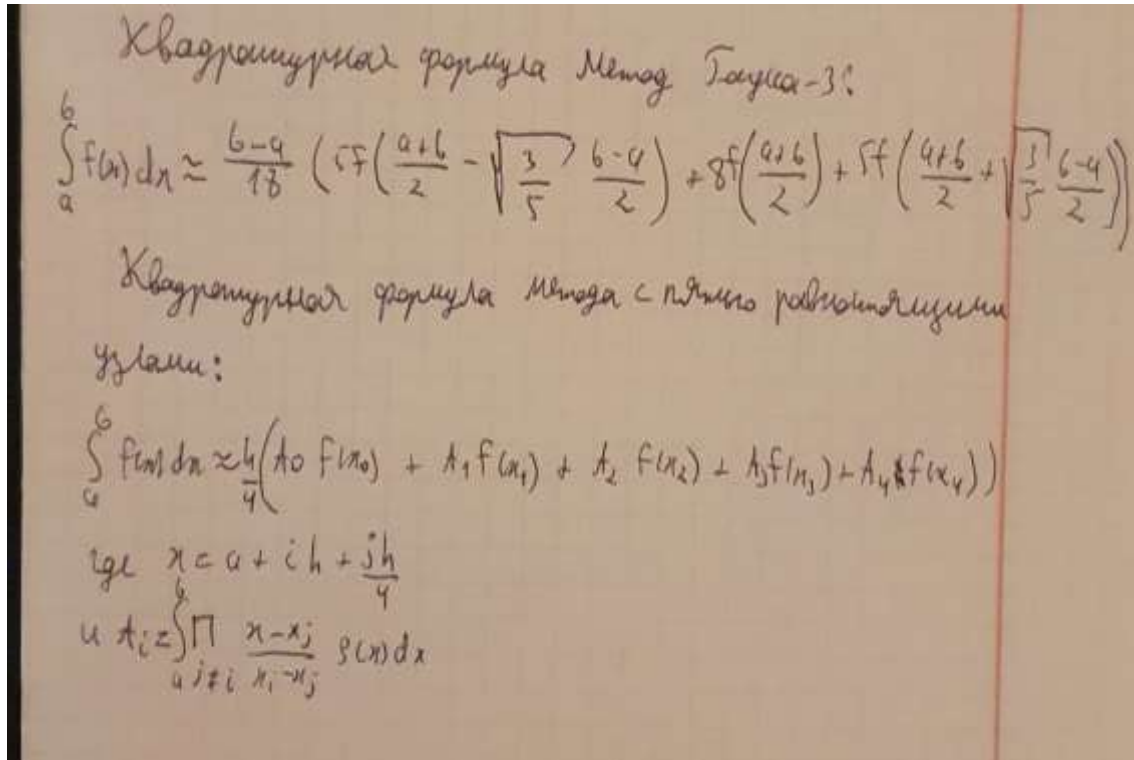 Квадратурная формула Метод Гаусса-3:
∫_a^b f(x) dx ≈ (b-a)/18 (5f((a+b)/2 - √(3/5) (b-a)/2) + 8f((a+b)/2) + 5f((a+b)/2 + √(3/5) (b-a)/2))
Квадратурная формула метода с пятью равноотстоящими
узлами:
∫_a^b f(x) dx ≈ h/4 (A0 f(x₀) + A₁ f(x₁) + A₂ f(x₂) + A₃ f(x₃) + A₄ f(x₄))
где x = a + ih + jh/4
и A_i = ∫_a^b ∏_{j≠i} (x-x_j)/(x_i-x_j) ρ(x) dx